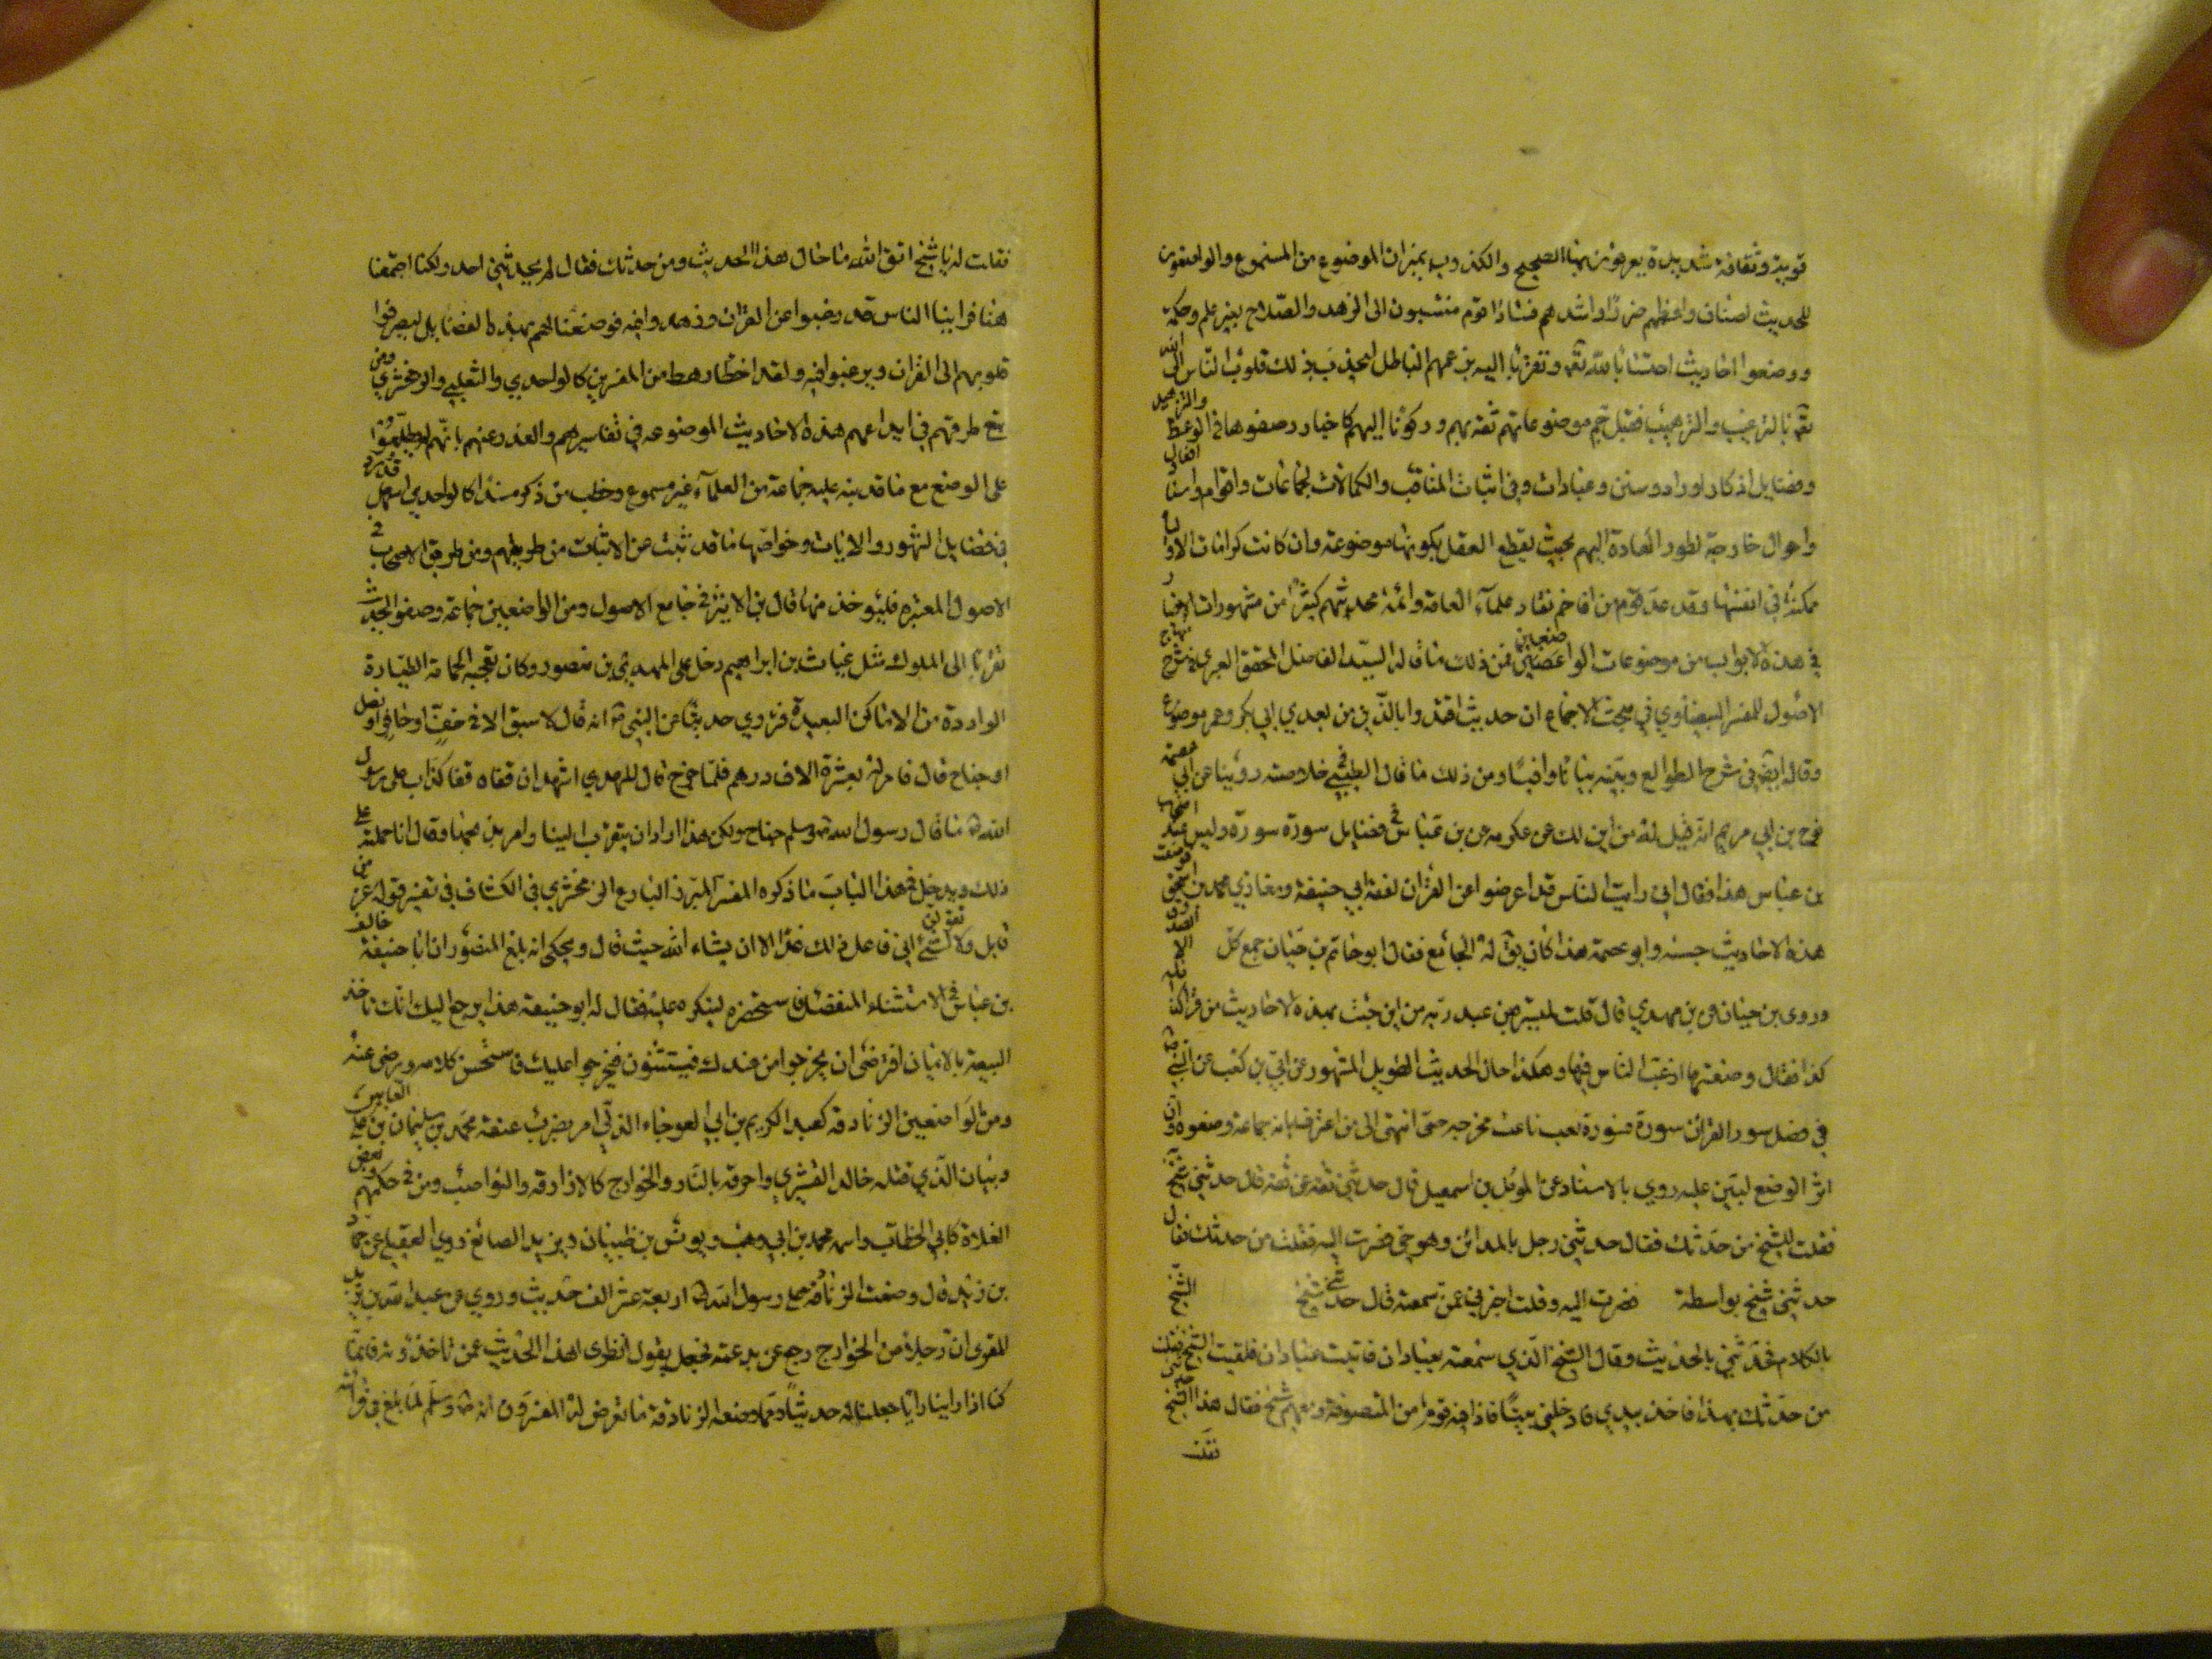 قوية وثقافة شديدة يعرفون بها الصحيح والكذوب بميزان الموضوع من المسموع والواضعون
للحديث اصناف واعظمهم ضررا واشدهم فسادا قوم منتسبون الى الزهد والصلاح بغير علم وحكمة
ووضعوا احاديث احتسابا لله تعه وتقربا اليه بزعمهم الباطل ليجذب بذلك قلوب الناس الى الله
تعه بالترغيب والترهيب فقبل موضوعاتهم ثقة بهم وركونا اليهم كاخبار وضعوها في الوعظ والتزهيد
وفضايل اذكار اوراد وسنن وعبادات وفي اثبات المناقب والكمالات لجماعات واقوام واسناد افعال
واحوال خارجة لطور العادة اليهم بحيث يقطع العقل بكونها موضوعة وان كانت كرامات الاوليا
ممكنة في انفسها وقد عد قوم من افاخم نقاد علماء العامة وائمة محدثيهم كثيرا من مشهورات الاخبار
في هذه الابواب من موضوعات الواضعين فمن ذلك ما قاله السيد الفاضل المحقق العبري في شرح منهاج
الاصول للمفسر البيضاوي في مبحث الاجماع ان حديث اقتدوا بالذين من بعدي ابي بكر وعمر موضوع
وقال ايضه في شرح الطوالع وبينه بيانا وافيا ومن ذلك ما قال الطيبي في خلاصته روينا عن ابي عصمة
نوح بن ابي مريم انه قيل له من اين لك عن عكرمة عن بن عباس في فضايل سورة سورة وليس عند اصحاب
بن عباس هذا فقال اني رايت الناس قد اعرضوا عن القران لفقه ابي حنيفة ومغازي محمد بن اسحق فوضعت
هذه الاحاديث حسبة وابو عصمة هذا كان يق له الجامع فقال ابو حاتم بن حبان جمع كل الا الصدق
وروى بن حبان عن بن مهدي قال قلت لميسرة بن عبد ربه من اين جئت بهذه الاحاديث من قرا كذا فله
كذا فقال وضعتها ارغب الناس فيها وهكذا حال الحديث الطويل المشهور عن ابي بن كعب عن النبي ص
في فضل سور القران سورة فسورة بحث باحث مخرجه حتى انتهى الى من اعترف بانه جماعة وضعوه وان
اثر الوضع لبين عليه روي بالاسناد عن المؤمل بن اسمعيل قال حدثني ثقة عن ثقة قال حدثني شيخ به
فقلت للشيخ من حدثك فقال حدثني رجل بالمدائن وهو حي فصرت اليه فقلت من حدثك فقال
حدثني شيخ بواسطة فصرت اليه وقلت اخبرني عمن سمعته قال حدثني شيخ الشيخ
بالكلام فحدثني بالحديث وقال الشيخ الذي سمعته بعبادان فاتيت عبادان فلقيت الشيخ فقلت
من حدثك بهذا فاخذ بيدي فادخلني بيتا فاذا فيه قوم من المتصوفة ومعهم شيخ فقال هذا الشيخ حدثني
فقلت
فقلت له يا شيخ اتق الله ما حال هذا الحديث ومن حدثك فقال لم يحدثني احد ولكنا اجتمعنا
هنا فراينا الناس قد رغبوا عن القران وزهدوا فيه فوضعنا لهم بهذه الفضايل ليصرفوا
قلوبهم الى القران ويرغبوا فيه ولقد اخطا رهط من المفسرين كالواحدي والثعلبي والزمخشري ومن
تبع طرقهم في ايداعهم هذه الاحاديث الموضوعة في تفاسيرهم والعذر عنهم بانهم لم يطلعوا
على الوضع مع ما قد نبه عليه جماعة من العلماء غير مسموع وخطب من ذكر مسندا كالواحدي اسهل وقد ورد
في فضايل السور والايات وخواصها ما قد ثبت عن الاثبات من طريقهم ومن طريق الاصحاب في
الاصول المعتبره فليؤخذ منها قال بن الاثير في جامع الاصول ومن الواضعين جماعة وضعوا الحديث
تقربا الى الملوك مثل غياث بن ابراهيم دخل على المهدي بن منصور وكان تعجبه الحمامة الطيارة
الواردة من الاماكن البعيدة فروي حديثا عن النبي ص انه قال لا سبق الا في خف او حافر او نصل
او جناح قال فامر له بعشرة الاف درهم فلما خرج قال المهدي اشهد ان قفاه قفا كذاب على رسول
الله ص ما قال رسول الله ص وسلم جناح ولكن هذا اراد ان يتقرب الينا وامر بذبحها وقال انا حملته على
ذلك ويدخل في هذا الباب ما ذكره المفسر المبرز البارع الزمخشري في الكشاف في تفسير قوله عز من
قايل ولا تقولن لشئ اني فاعل ذلك غدا الا ان يشاء الله حيث قال ويحكى انه بلغ المنصور ان ابا حنيفة خالف
بن عباس في الاستثناء المنفصل فاستحضره لينكره عليه فقال له ابو حنيفة هذا يرجع اليك انك تاخذ
البيعة بالايمان افترضى ان يخرجوا من عندك فيستثنون فيخرجوا عليك فاستحسن كلامه ورضي عنه
ومن الواضعين الزنادقة كعبد الكريم بن ابي العوجاء الذي امر بضرب عنقه محمد بن سليمان بن علي العباسي
وبنيان الذي قتله خالد القشيري واحرقه بالنار والخوارج كالازارقة والنواصب ومن في حكمهم وبعض
الغلاة كابي الخطاب واسمه محمد بن ابي وهب ويونس بن ظبيان ويزيد الصائغ روي العقيلي عن حماد
بن زيد قال وضعت الزنادقة على رسول الله ص اربعة عشر الف حديث وروي عن عبد الله بن يزيد
المقري ان رجلا من الخوارج رجع عن بدعته فجعل يقول انظروا هذا الحديث عمن تاخذونه فانما
كنا اذا راينا رايا جعلنا له حديثا ومما وضعه الزنادقة ما تعرض له المفسرون انه ص وسلم لما بلغ في قراءته